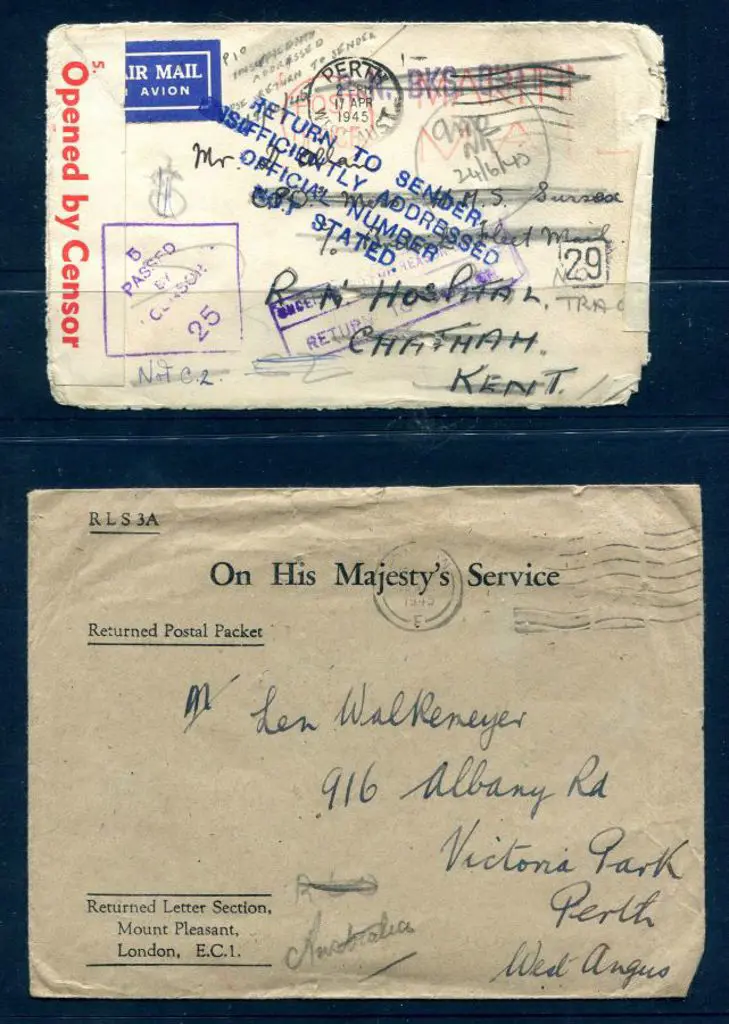 5.
Opened by Censor
AIR MAIL
AVION
P10
INSUFFICIENTLY
ADDRESSED
RETURN TO SENDER
PERTH
17 APR
1945
RETURN TO SENDER,
INSUFFICIENTLY ADDRESSED
OFFICIAL NUMBER
NOT STATED
Mr.
H.M.S. Sussex
Fleet Mail
24/6/45
29
R N HOSPITAL.
CHATHAM.
KENT.
RETURN TO
TRAC
5
PASSED
BY
CENSOR
25
Not C.2.
RLS 3A
On His Majesty's Service
1945
E
Returned Postal Packet
Mr Len Walkemeyer
916 Albany Rd
Victoria Park
Perth
West Angus
Returned Letter Section,
Mount Pleasant,
London, E.C.1.
Australia